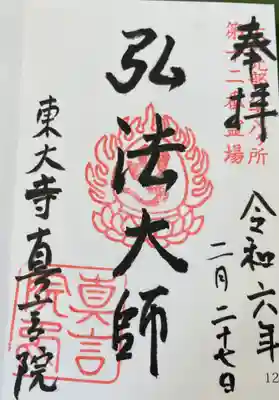 奉拝
第十二番霊場
令和六年
二月二十七日
弘法大師
東大寺真言院
真言
12